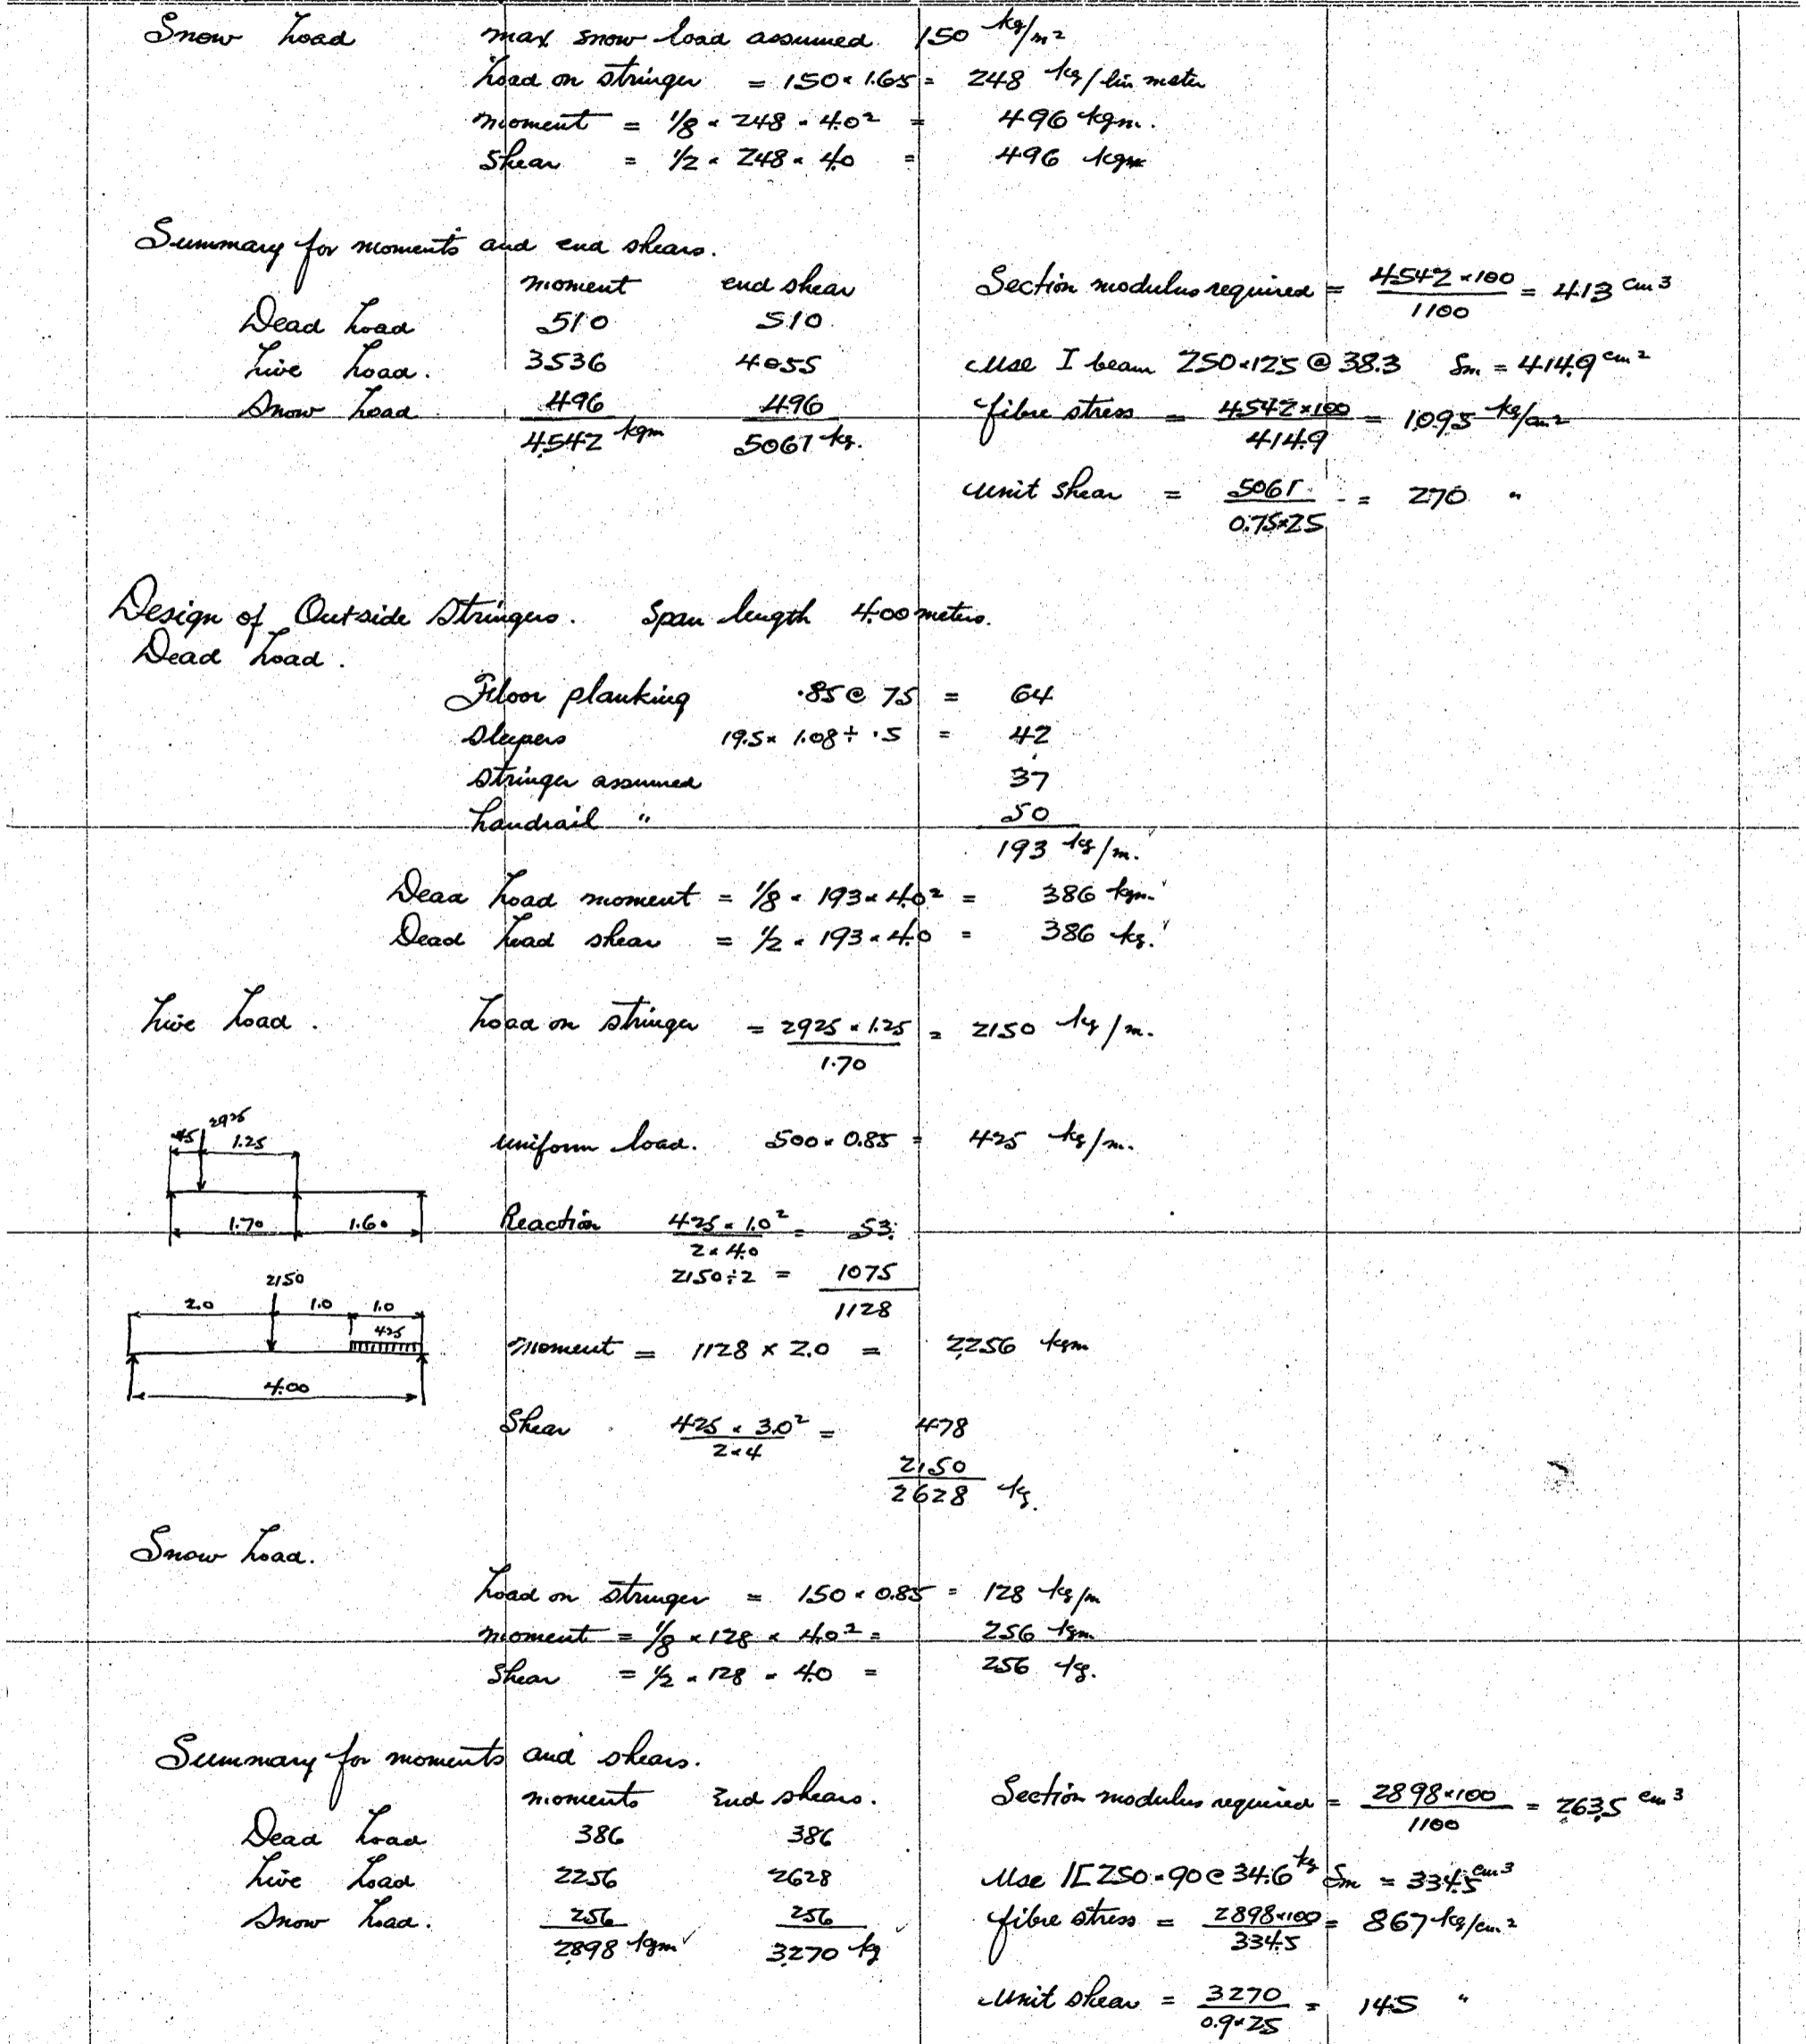 Snow Load max snow load assumed 150 kg/m²
Load on stringer = 150 × 1.65 = 248 kg/lin meter
moment = 1/8 × 248 × 4.0² = 496 kgm.
Shear = 1/2 × 248 × 4.0 = 496 kgm
Summary for moments and end shears.
moment end shear
Dead Load 510 510
Live Load. 3536 4055
Snow Load 496 496
4542 kgm 5061 kg.
Section modulus required = 4542×100 / 1100 = 413 cm³
Use I beam 250×125 @ 38.3 Sm = 414.9 cm²
fibre stress = 4542×100 / 414.9 = 1095 kg/cm²
unit shear = 5061 / 0.75×25 = 270 "
Design of Outside Stringers. Span length 4.00 meters.
Dead Load.
Floor planking .85 @ 75 = 64
Sleepers 19.5 × 1.08 ÷ .5 = 42
Stringer assumed 37
handrail " 50
193 kg/m.
Dead Load moment = 1/8 × 193 × 4.0² = 386 kgm.
Dead Load shear = 1/2 × 193 × 4.0 = 386 kg.
Live Load. Load on stringer = 2925 × 1.25 / 1.70 = 2150 kg/m.
2925
.45 1.25
1.70 1.60
uniform load. 500 × 0.85 = 425 kg/m.
Reaction 425 × 1.0² / 2 × 4.0 = 53.
2150 ÷ 2 = 1075
1128
2150
2.0 1.0 1.0
425
4.00
Moment = 1128 × 2.0 = 2256 kgm
Shear 425 × 3.0² / 2×4 = 478
2150
2628 kg.
Snow Load.
Load on stringer = 150 × 0.85 = 128 kg/m
moment = 1/8 × 128 × 4.0² = 256 kgm
Shear = 1/2 × 128 × 4.0 = 256 kg.
Summary for moments and shears.
moments End shears.
Dead Load 386 386
Live Load 2256 2628
Snow Load. 256 256
2898 kgm 3270 kg
Section modulus required = 2898×100 / 1100 = 263.5 cm³
Use 1[ 250×90 @ 34.6 kg Sm = 334.5 cm³
fibre stress = 2898×100 / 334.5 = 867 kg/cm²
Unit shear = 3270 / 0.9×25 = 145 "